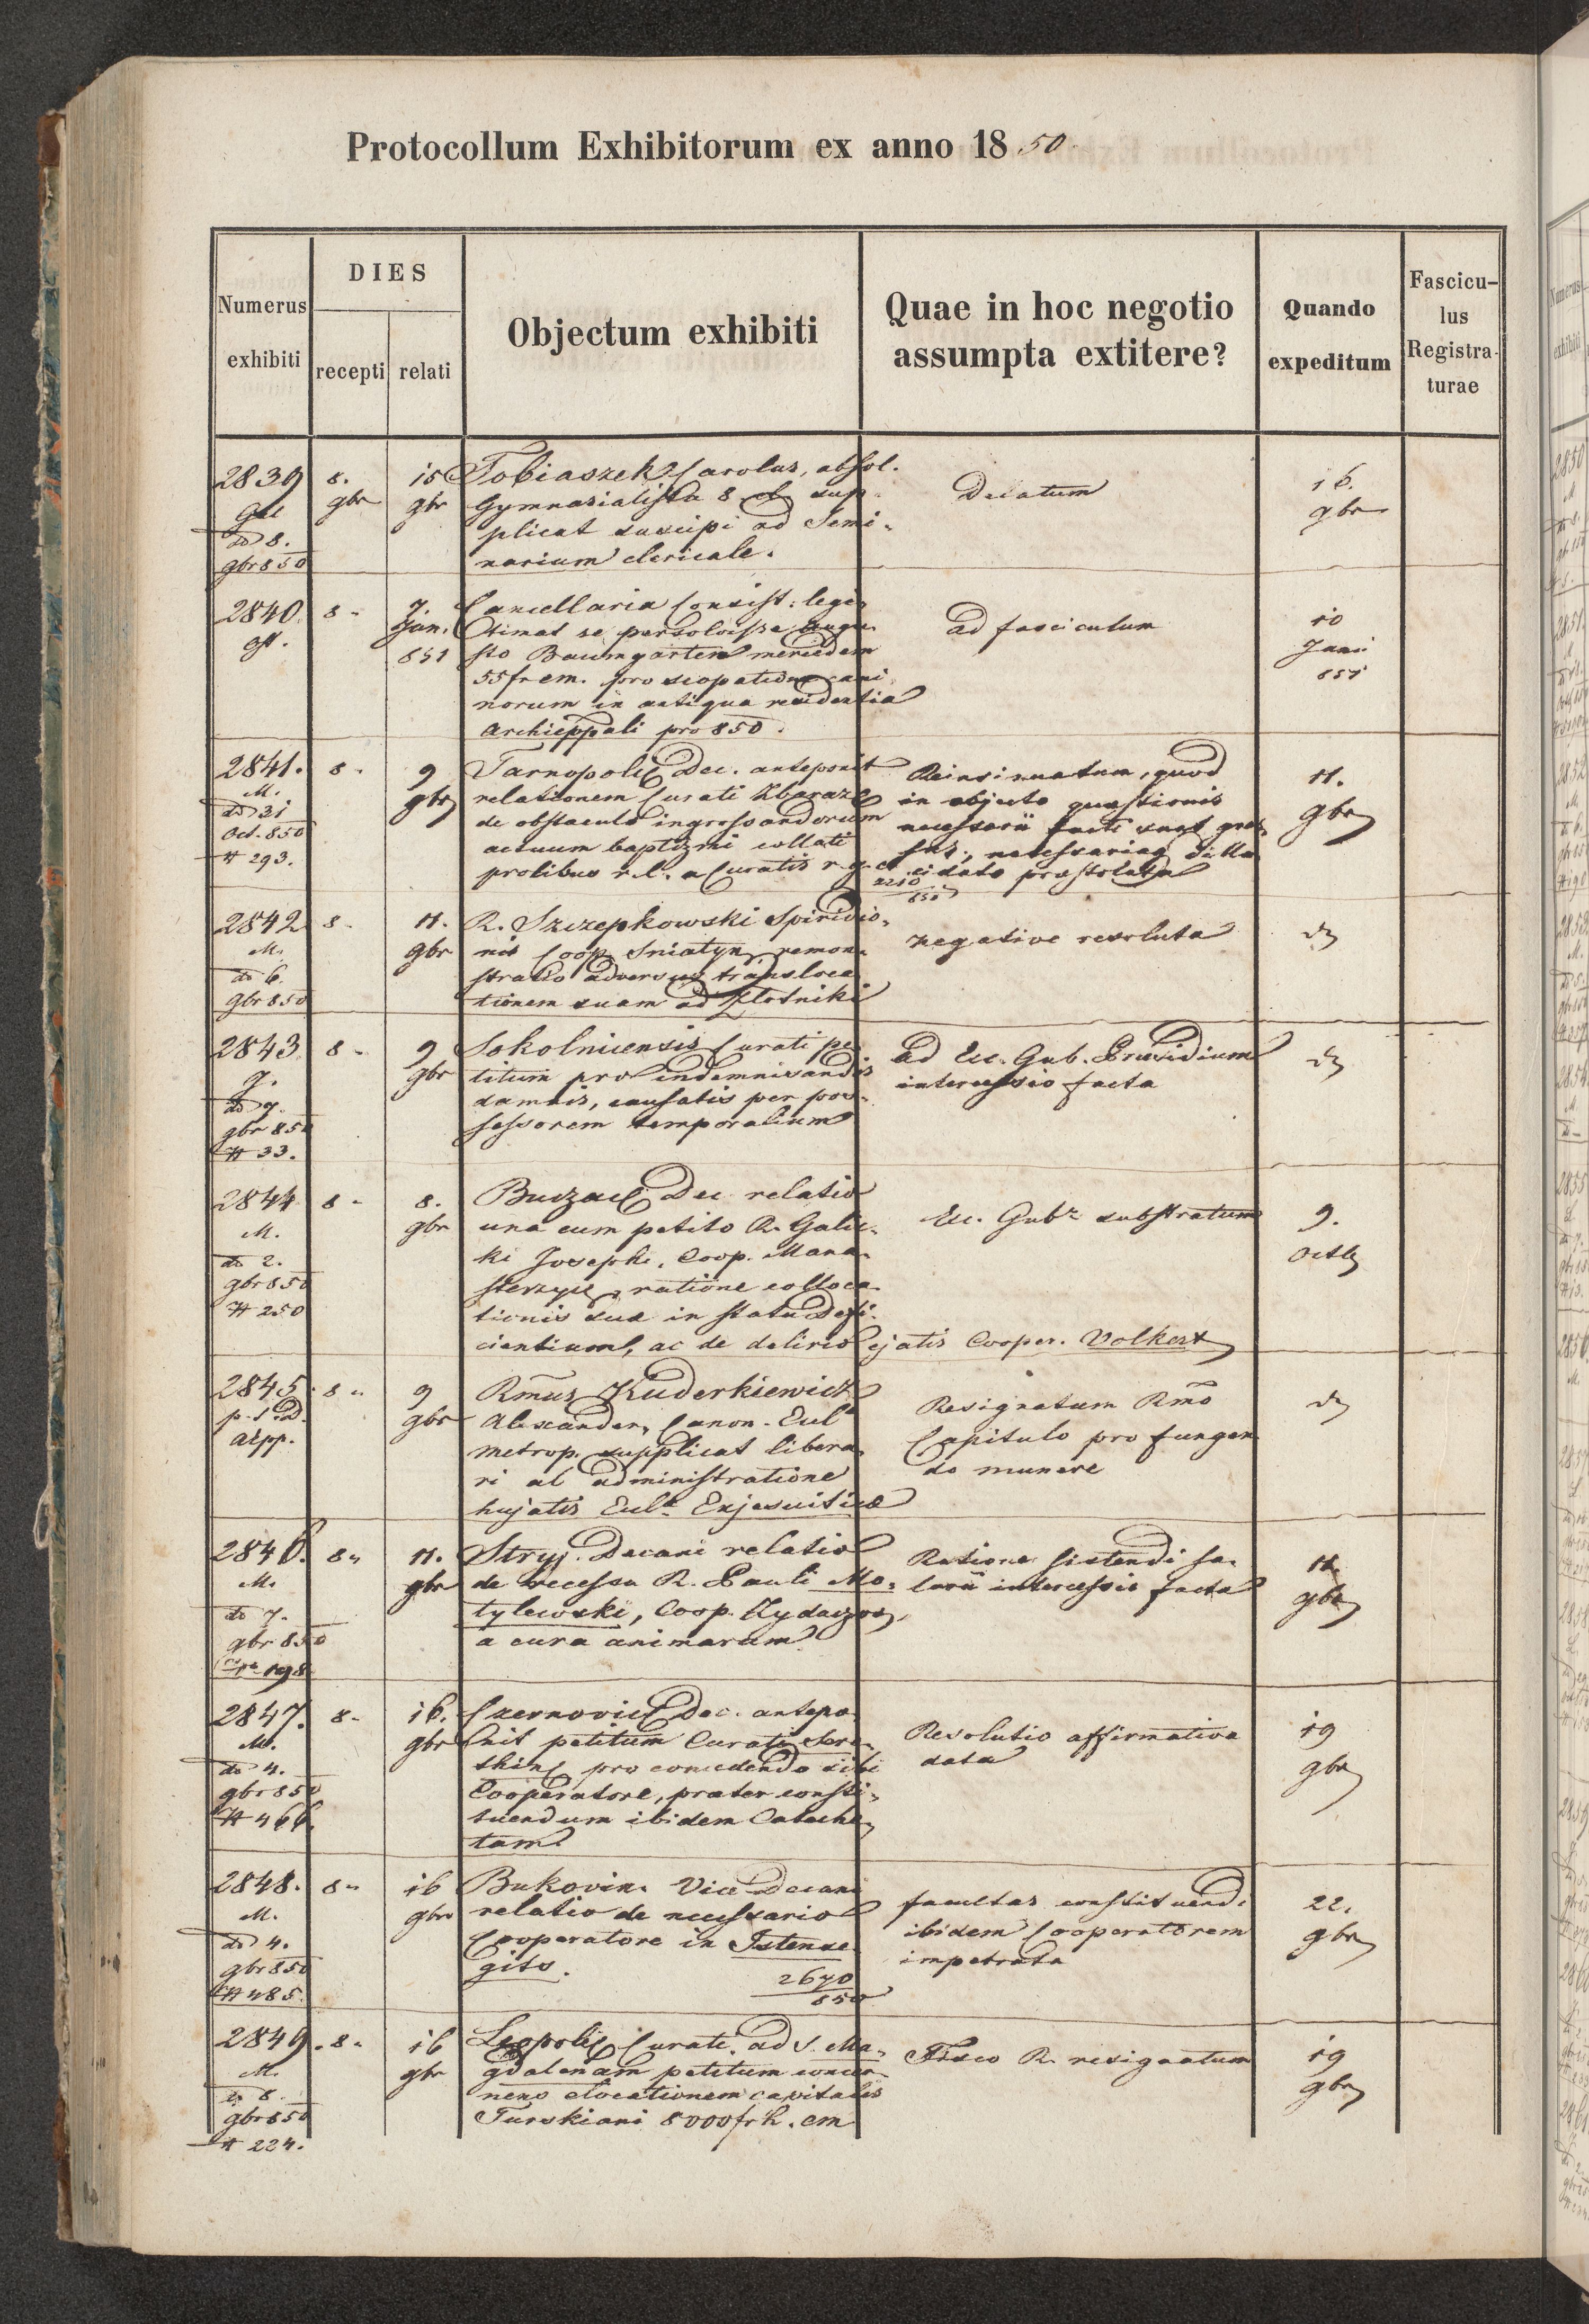 Protocollum Exhibitorum ex anno 1850
Numerus
exhibiti
DIES
recepti
relati
Objectum exhibiti
Quae in hoc negotio
assumpta extitere?
Quando
expeditum
Fascicu-
lus
Registra-
turae
2839
dd 8.
gbr 850
8.
gbr
15
gbr
Tobiaszek Carolus, absol.
Gymnasialista 8 cl. sup-
plicat suscipi ad Semi-
narium clericale.
Delatum
16.
gbr
2840
8 -
7.
Jan.
851
Cancellaria Consist: legi-
timat se persolvisse Augu-
sto Baumgarten mercedem
55 fr em. pro scopatione cami
norum in antiqua residentia
Archieppali pro 850.
ad fasciculum
10
Jani
851
2841.
M.
dd 31
Oct. 850
# 293.
8 -
9
gbr
Tarnopol. Dec. anteponit
relationem Curati Zbaraz.
de obstaculo ingrossandorum
actuum baptizmi collati
prolibus r. l. a Curatis r. g. c.
Reinsinuatum, quod
in objecto quaestionis
necessarii facti sunt gres-
sus, necessariaq dilu-
cidatio praestolatur
2210
850
11.
gbr
2842
M.
dd 6.
gbr 850
8 -
11.
gbr
R. Szczepkowski Spiridio-
nis Coop. Sniatyn. remon-
stratio adversus transloca
tionem suam ad Zlotniki
negative resoluta
2843
dd 7.
gbr 850
# 33.
8 -
9
gbr
Sokolnicensis Curati pe-
titum pro indemnisandis
damnis, causatis per pos-
sessorem temporalium
ad Ec. Gub. Praesidium
intercessio facta
2844
M.
dd 2.
gbr 850
# 250
8 -
8.
gbr
Buczac. Dec. relatio
una cum petito R. Galic-
ki Josephi, Coop. Mona-
sterzysc, ratione colloca
tionis suae in statu Defi-
cientium, ac de delirio ejatis Cooper. Volkert
Ec. Gub. substratum
9.
2845
8 -
9
gbr
Rmus Kuderkiewicz
Alexander, Canon. Eccl
metrop. supplicat libera-
ri ab administratione
hujatis Eccl. Exjesuiticae
Resignatum Rmo
Capitulo pro fungen
do munere
2846.
M.
dd 7.
gbr 850
198
8 -
11.
gbr
Stryj. Decani relatio
de recessu R. Pauli Mo-
tylewski, Coop. Zydaczov,
a cura animarum
Ratione sistendi sa-
larii intercessio facta
11
gbr
2847.
M.
dd 4.
gbr 850
# 466.
8 -
16.
gbr
Czernovic. Dec. antepo-
nit petitum Curati Sere-
thin, pro concedendo sibi
Cooperatore, praeter consti-
tuendum ibidem Cateche-
tam
Resolutio affirmativa
data
19
gbr
2848.
M.
dd 4.
gbr 850
# 485.
8 -
16
gbr
Bukovin. Vice Decani
relatio de necessario
Cooperatore in Istense-
gits.
2670
850
facultas constituendi
ibidem Cooperatorem
impetrata
22.
gbr
2849.
M.
dd 8.
gbr 850
# 224.
8 -
16
gbr
Leopoli. Curati ad S. Ma-
gdalenam petitum concer-
nens elocationem capitalis
Turskiani 8000 frh. em
Fisco R. resignatum
19
gbr